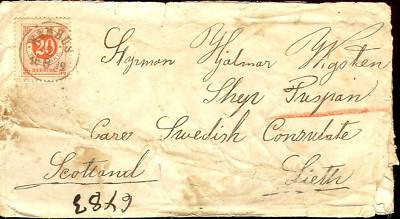 20
Styrman Hjalmar Wigsten
Skep Puspan
Care Swedish Consulate
Scotland Lieth
6783